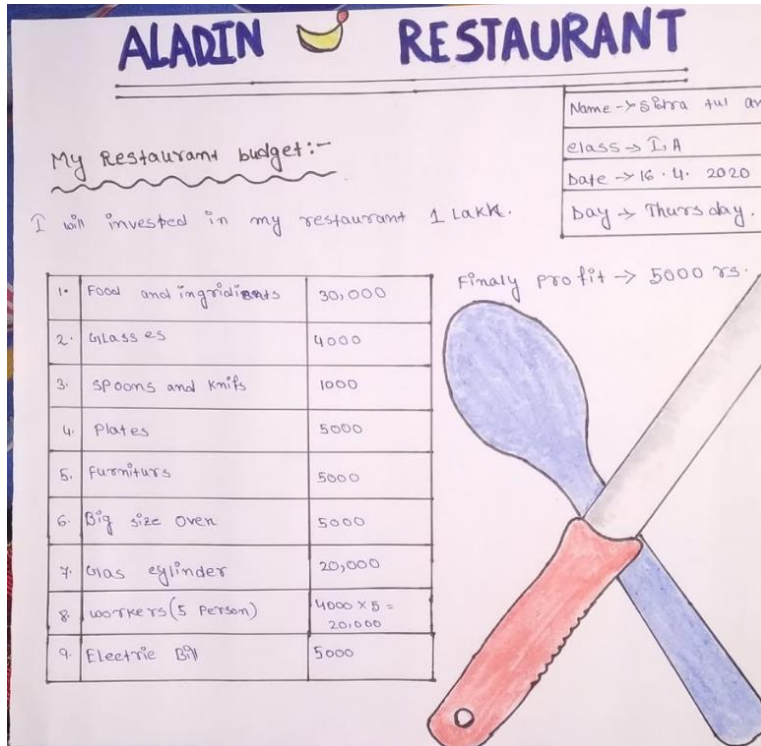 ALADIN RESTAURANT
Name →
class → I, A
Date → 16 . 4 . 2020
Day → Thursday.
My Restaurant budget:-
I will invested in my restaurant 1 Lakh.
Finaly profit → 5000 rs.
1. Food and ingridients 30,000
2. Glasses 4000
3. spoons and knifs 1000
4. Plates 5000
5. Furniturs 5000
6. Big size oven 5000
7. Gas cylinder 20,000
8. workers (5 Person) 4000 × 5 =
20,000
9. Electric Bill 5000